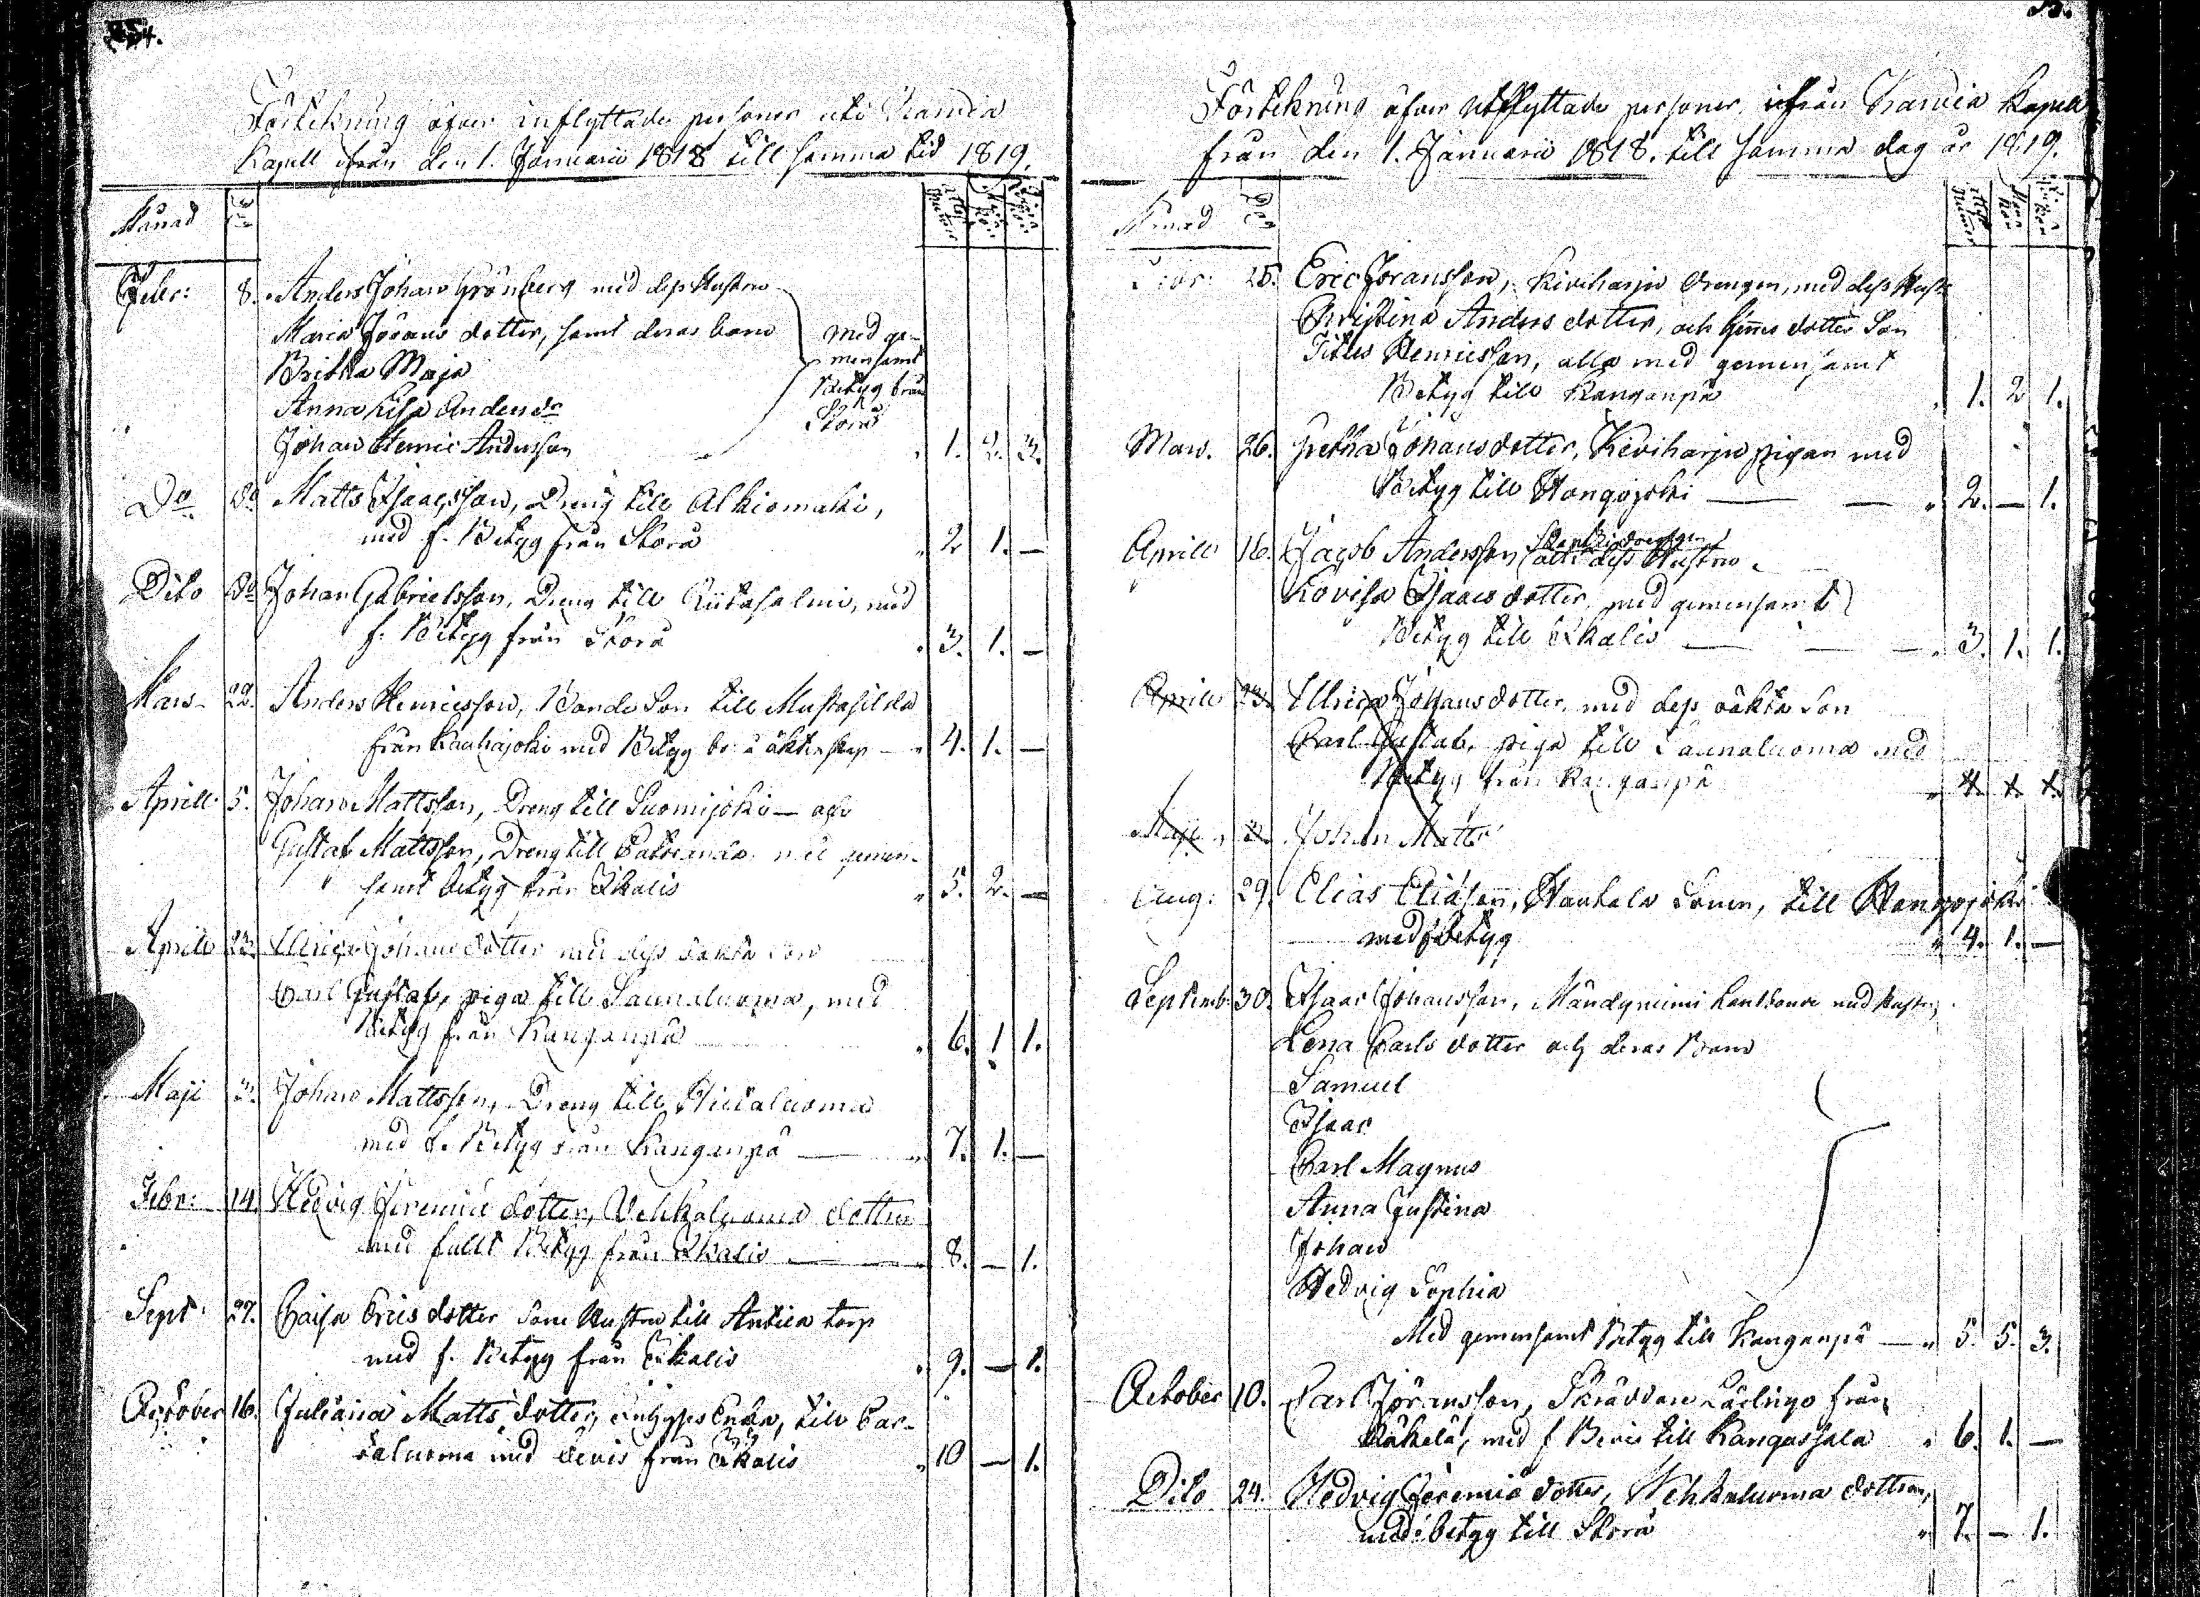 54.
Förtekning öfver inflyttade personer uti Karvia
Kapell ifrån den 1. Januarii 1818 till samma tid 1819.
Månad
Febr: 8. Anders Johan Grönberg med dess Hustru
Maria Jörans dotter, samt deras barn
Britha Maja
Anna Lisa Anders dr
Johan Henric Andersson
med ge-
mensamt
Betyg från
Storå
1. 2. 3.
Do Do Matts Isaacsson, Dreng till Alkiomäki,
med f. Betyg från Storå 2 1. —
Dito Do Johan Gabrielsson, Dreng till Riitasalmi, med
f. Betyg från Storå 3. 1. —
Mars 22. Anders Henricsson, Bonde Son till Mustasilda
från Kauhajoki med Betyg br: i äktenskap 4. 1. —
Aprill 5. Johan Mattsson, Dreng till Suomijoki — och
Gustaf Mattsson, Dreng till med gemen-
samt betyg från Ikalis 5. 2. —
Aprill 23. Ulrica Johans dotter med dess oäkta Son
Carl Gustaf, piga till Saunaluoma, med
Betyg från Kanganpä 6. 1 1.
Maji 3. Johan Mattsson, Dreng till Hietaluoma
med f. Betyg från Kanganpä — 7. 1. —
Febr: 14. Hedvig Jeremiæ dotter, Vehkaluoma dottren
med fullt Betyg från Ikalis — 8. — 1.
Sept: 27. Caisa Erics dotter som Hustru till Antila torp
med f. Betyg från Ikalis 9. — 1.
October 16. Juliana Matts dotter, Enka, till Sar-
valuoma med bevis från Ikalis 10 — 1.
Förtekning öfver utflyttade personer ifrån Karvia Kapell
från den 1. Januarii 1818. till samma dag år 1819.
Månad
25. Eric Joransson, Kiviharju drengen, med dess Hust:
Christina Anders dotter, och hennes dotter Son
Titus Henricsson, alla med gemensamt
Betyg till Kanganpä 1. 2 1.
Mars. 26. Gretha Johans dotter, Kiviharju pigan med
Betyg till Hongojoki — — 2. — 1.
Aprill 16. Jacob Andersson och dess Hustru
Lovisa Isaacs dotter, med gemensamt
Betyg till Ikalis — — 3. 1. 1.
Aprill 23. Ulrica Johans dotter, med dess oäkta Son
Carl Gustaf, piga till Saunaluoma med
Betyg från Kanganpä
Maji 3. Johan Matts
Aug: 29. Elias Eliasson, Sonen, till Hongojoki
med betyg 4. 1. —
Septemb: 30. Isaac Johansson, Mändyniemi Landbonde med Hustru,
Lena Carls dotter och deras Barn
Samuel
Isaac
Carl Magnus
Anna Justina
Johan
Hedvig Sophia
Med gemensamt Betyg till Kanganpä — 5. 5. 3.
October 10. Carl Jöransson, Skräddare Lärlinge från
med f Bevis till Kangassala 6. 1. —
Dito 24. Hedvig Jeremiæ dotter, Wehkaluoma dottren,
med betyg till Storå 7. — 1.